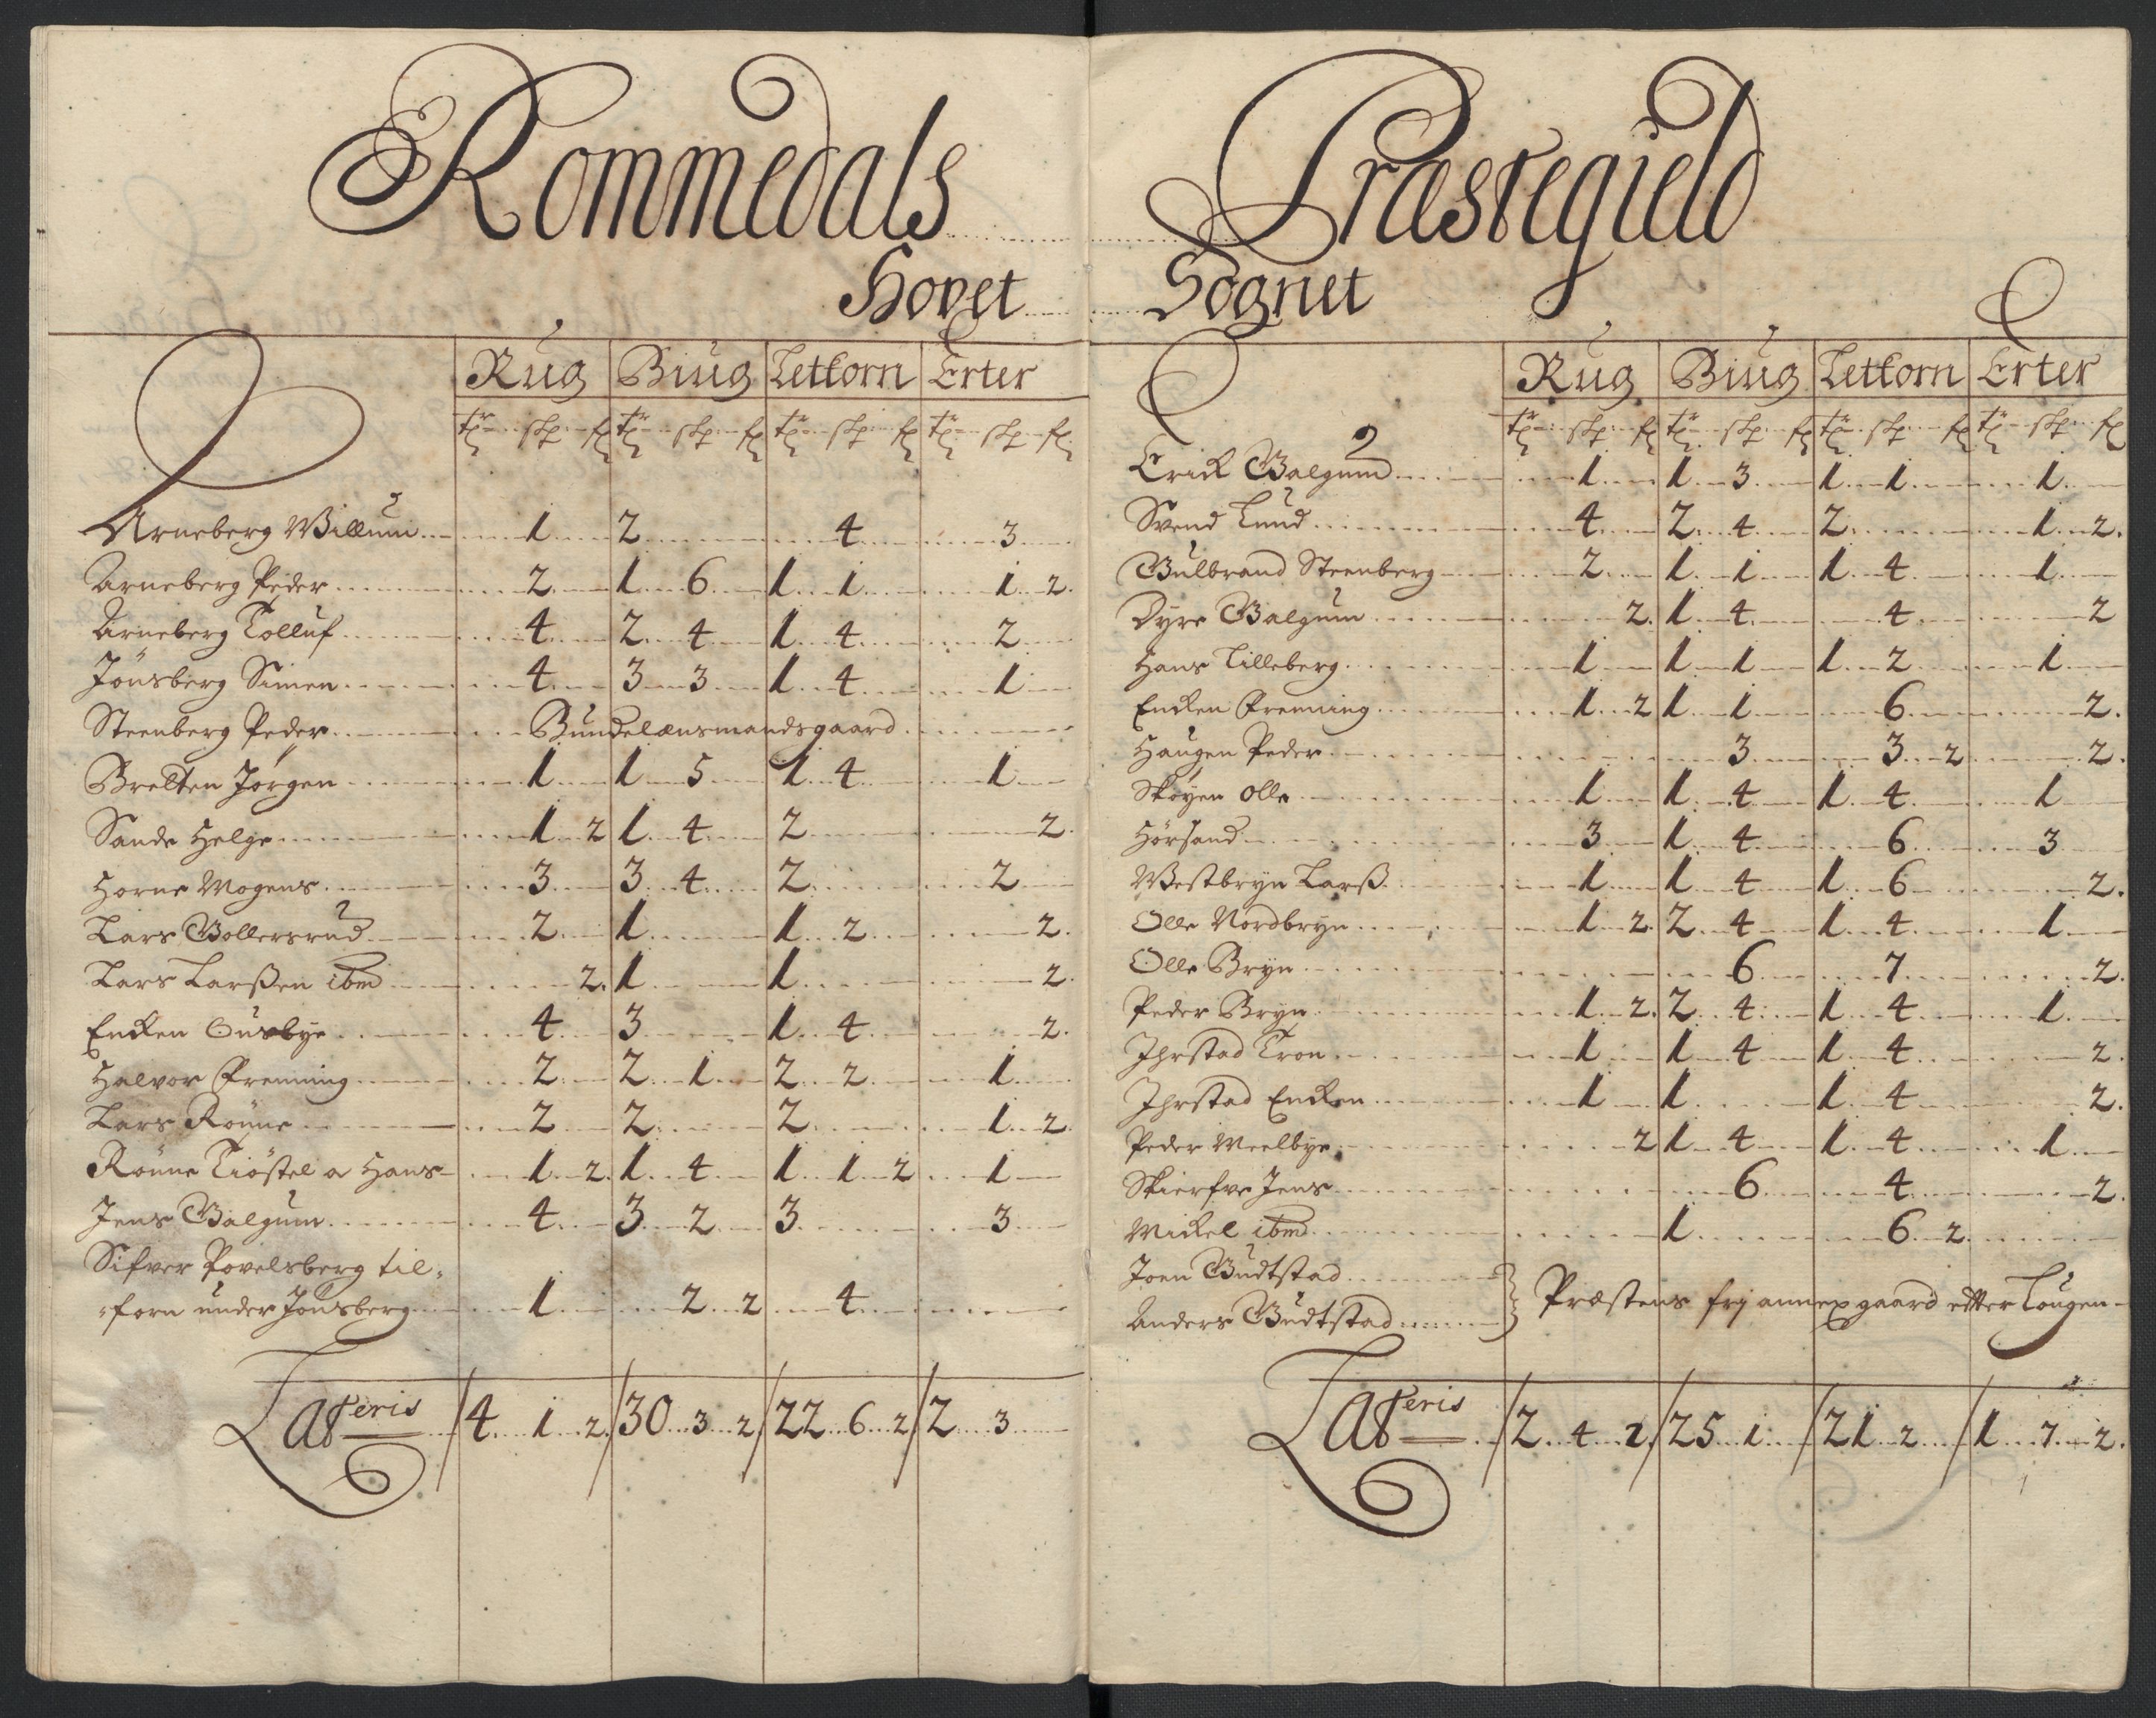 Rommedals
Hovet
Rug Biug Letkorn Erter
tr skp f tr skp f tr skp f tr skp f
Arneberg Willum 1 2 4 3
Arneberg Peder 2 1 6 1 1 1 2
Arneberg Tolluf 4 2 4 1 4 2
Jönsberg Simen 4 3 3 1 4 1
Steenberg Peder Bundelænsmandsgaard
Brelten Jörgen 1 1 5 1 4 1
Sande Helge 1 2 1 4 2 2
Horne Mogens 3 3 4 2 2
Lars Gollersrud 2 1 1 2 2
Lars Larßen ibm 2 1 1 2
Encken Gusbye 4 3 1 4 2
Halvor Frenning 2 2 1 2 2 1
Lars Rönne 2 2 2 1 2
Rönne Tiöstel a Hans 1 2 1 4 1 1 2 1
Jens Balgum 4 3 2 3 3
Sifver Povelsberg til
forn under Jönsberg 1 2 2 4
Lateris 4 1 2 / 30 3 2 / 22 6 2 / 2 3
Præstegield
Sognet
Rug Biug Letkorn Erter
tr skp f tr skp f tr skp f tr skp f
Erick Balgum 1 1 3 1 1 1
Svend Lund 4 2 4 2 1 2
Gulbrand Steenberg 2 1 1 1 4 1
Dyre Balgum 2 1 4 4 2
Hans Lilleberg 1 1 1 1 2 1
Encken Frenning 1 2 1 1 6 2
Haugen Peder 3 3 2 2
Sköyen Olle 1 1 4 1 4 1
Hörsand 3 1 4 6 3
Westbryn Larß 1 1 4 1 6 2
Olle Nordbryn 1 2 2 4 1 4 1
Olle Bryn 6 7 2
Peder Bryn 1 2 2 4 1 4 1
Jhrstad Tron 1 1 4 1 4 2
Jhrstad Encken 1 1 1 4 2
Peder Meelbye 2 1 4 1 4 1
Skierfve Jens 6 4 2
Mickel ibm 1 6 2
Joen Gudtstad
Anders Gudtstad } Præstens frj annex gaard efter Lougen
Lateris 2 4 2 / 25 1 / 21 2 / 1 7 2